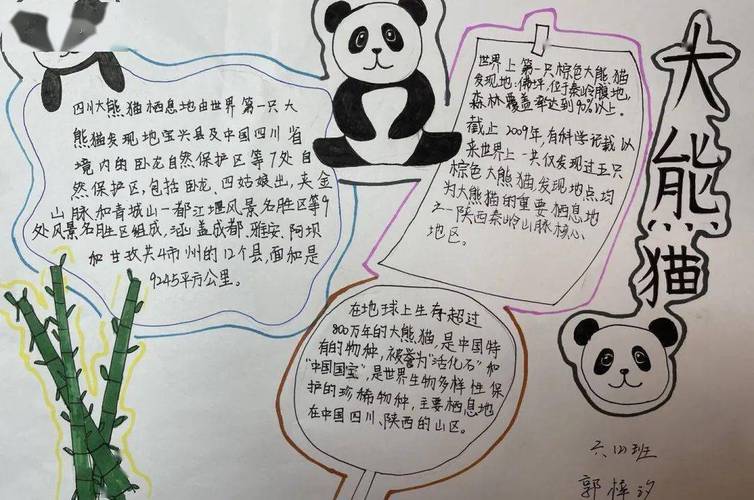 四川大熊猫栖息地由世界第一只大
熊猫发现地宝兴县及中国四川省
境内的卧龙自然保护区等7处自
然保护区,包括卧龙、四姑娘山,夹金
山脉和青城山—都江堰风景名胜区等9
处风景名胜区组成,涵盖成都、雅安、阿坝
和甘孜共4市州的12个县,面积是
9245平方公里。
世界上第一只棕色大熊猫
发现地:佛坪,位于秦岭腹地,
森林覆盖率达到90%以上。
截止2009年,有科学记载以
来世界上一共仅发现过五只
棕色大熊猫发现地点均
为大熊猫的重要栖息地
之一陕西秦岭山脉核心
地区。
大熊猫
在地球上生存超过
800万年的大熊猫,是中国特
有的物种,被誉为"活化石"和
"中国国宝",是世界生物多样性保
护的珍稀物种,主要栖息地
在中国四川、陕西的山区。
班
郭梓